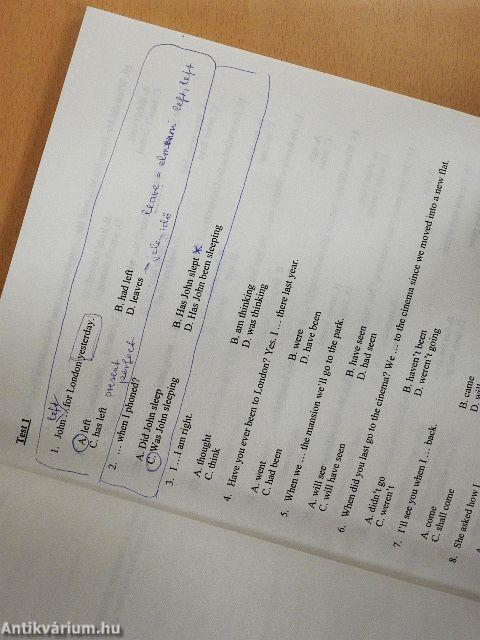 Test 1
left
1. John ... for London yesterday.
A. left B. had left
C. has left D. leaves – jelen idő leave = elmenni left, left
present perfect
2. ... when I phoned?
A. Did John sleep B. Has John slept *
C. Was John sleeping D. Has John been sleeping
3. I ... I am right.
A. thought B. am thinking
C. think D. was thinking
4. Have you ever been to London? Yes. I ... there last year.
A. went B. were
C. had been D. have been
5. When we ... the mansion we'll go to the park.
A. will see B. have seen
C. will have seen D. had seen
6. When did you last go to the cinema? We ... to the cinema since we moved into a new flat.
A. didn't go B. haven't been
C. weren't D. weren't going
7. I'll see you when I ... back.
A. come B. came
C. shall come D. will
8. She asked how I
Antikvárium.hu